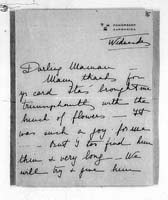 Wednesday
Darling Maman
Many thanks for
yr card Elas brought me
triumphantly with the
bunch of flowers — It
was such a joy for me
— But I too find
them & very long — We
will try & give him